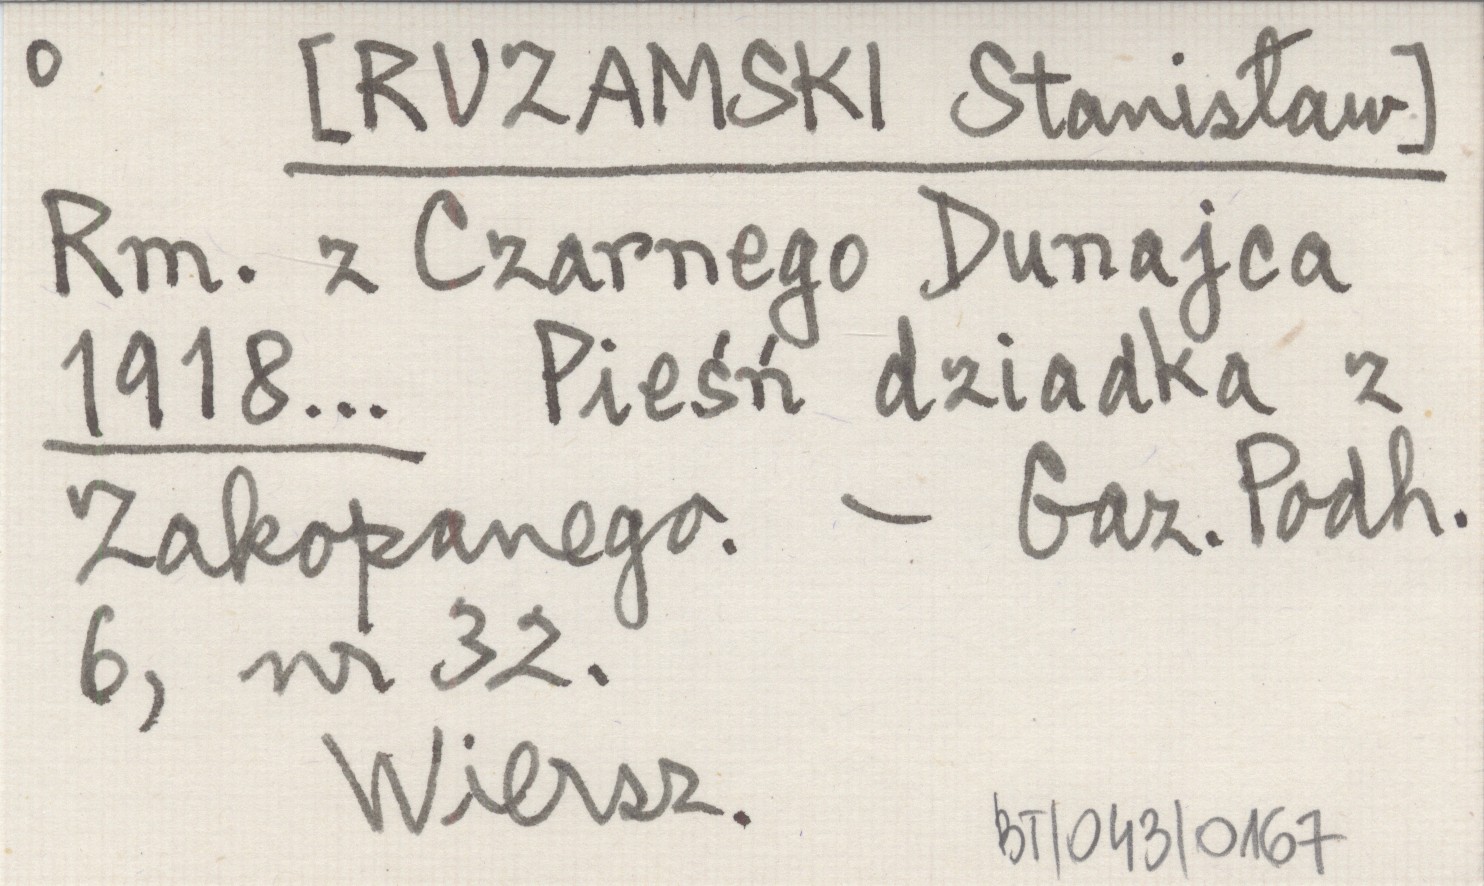 o [RUZAMSKI Stanisław]
Rm. z Czarnego Dunajca
1918... Pieśń dziadka z
Zakopanego. - Gaz. Podh.
6, nr 32.
Wiersz.
BT/043/0167